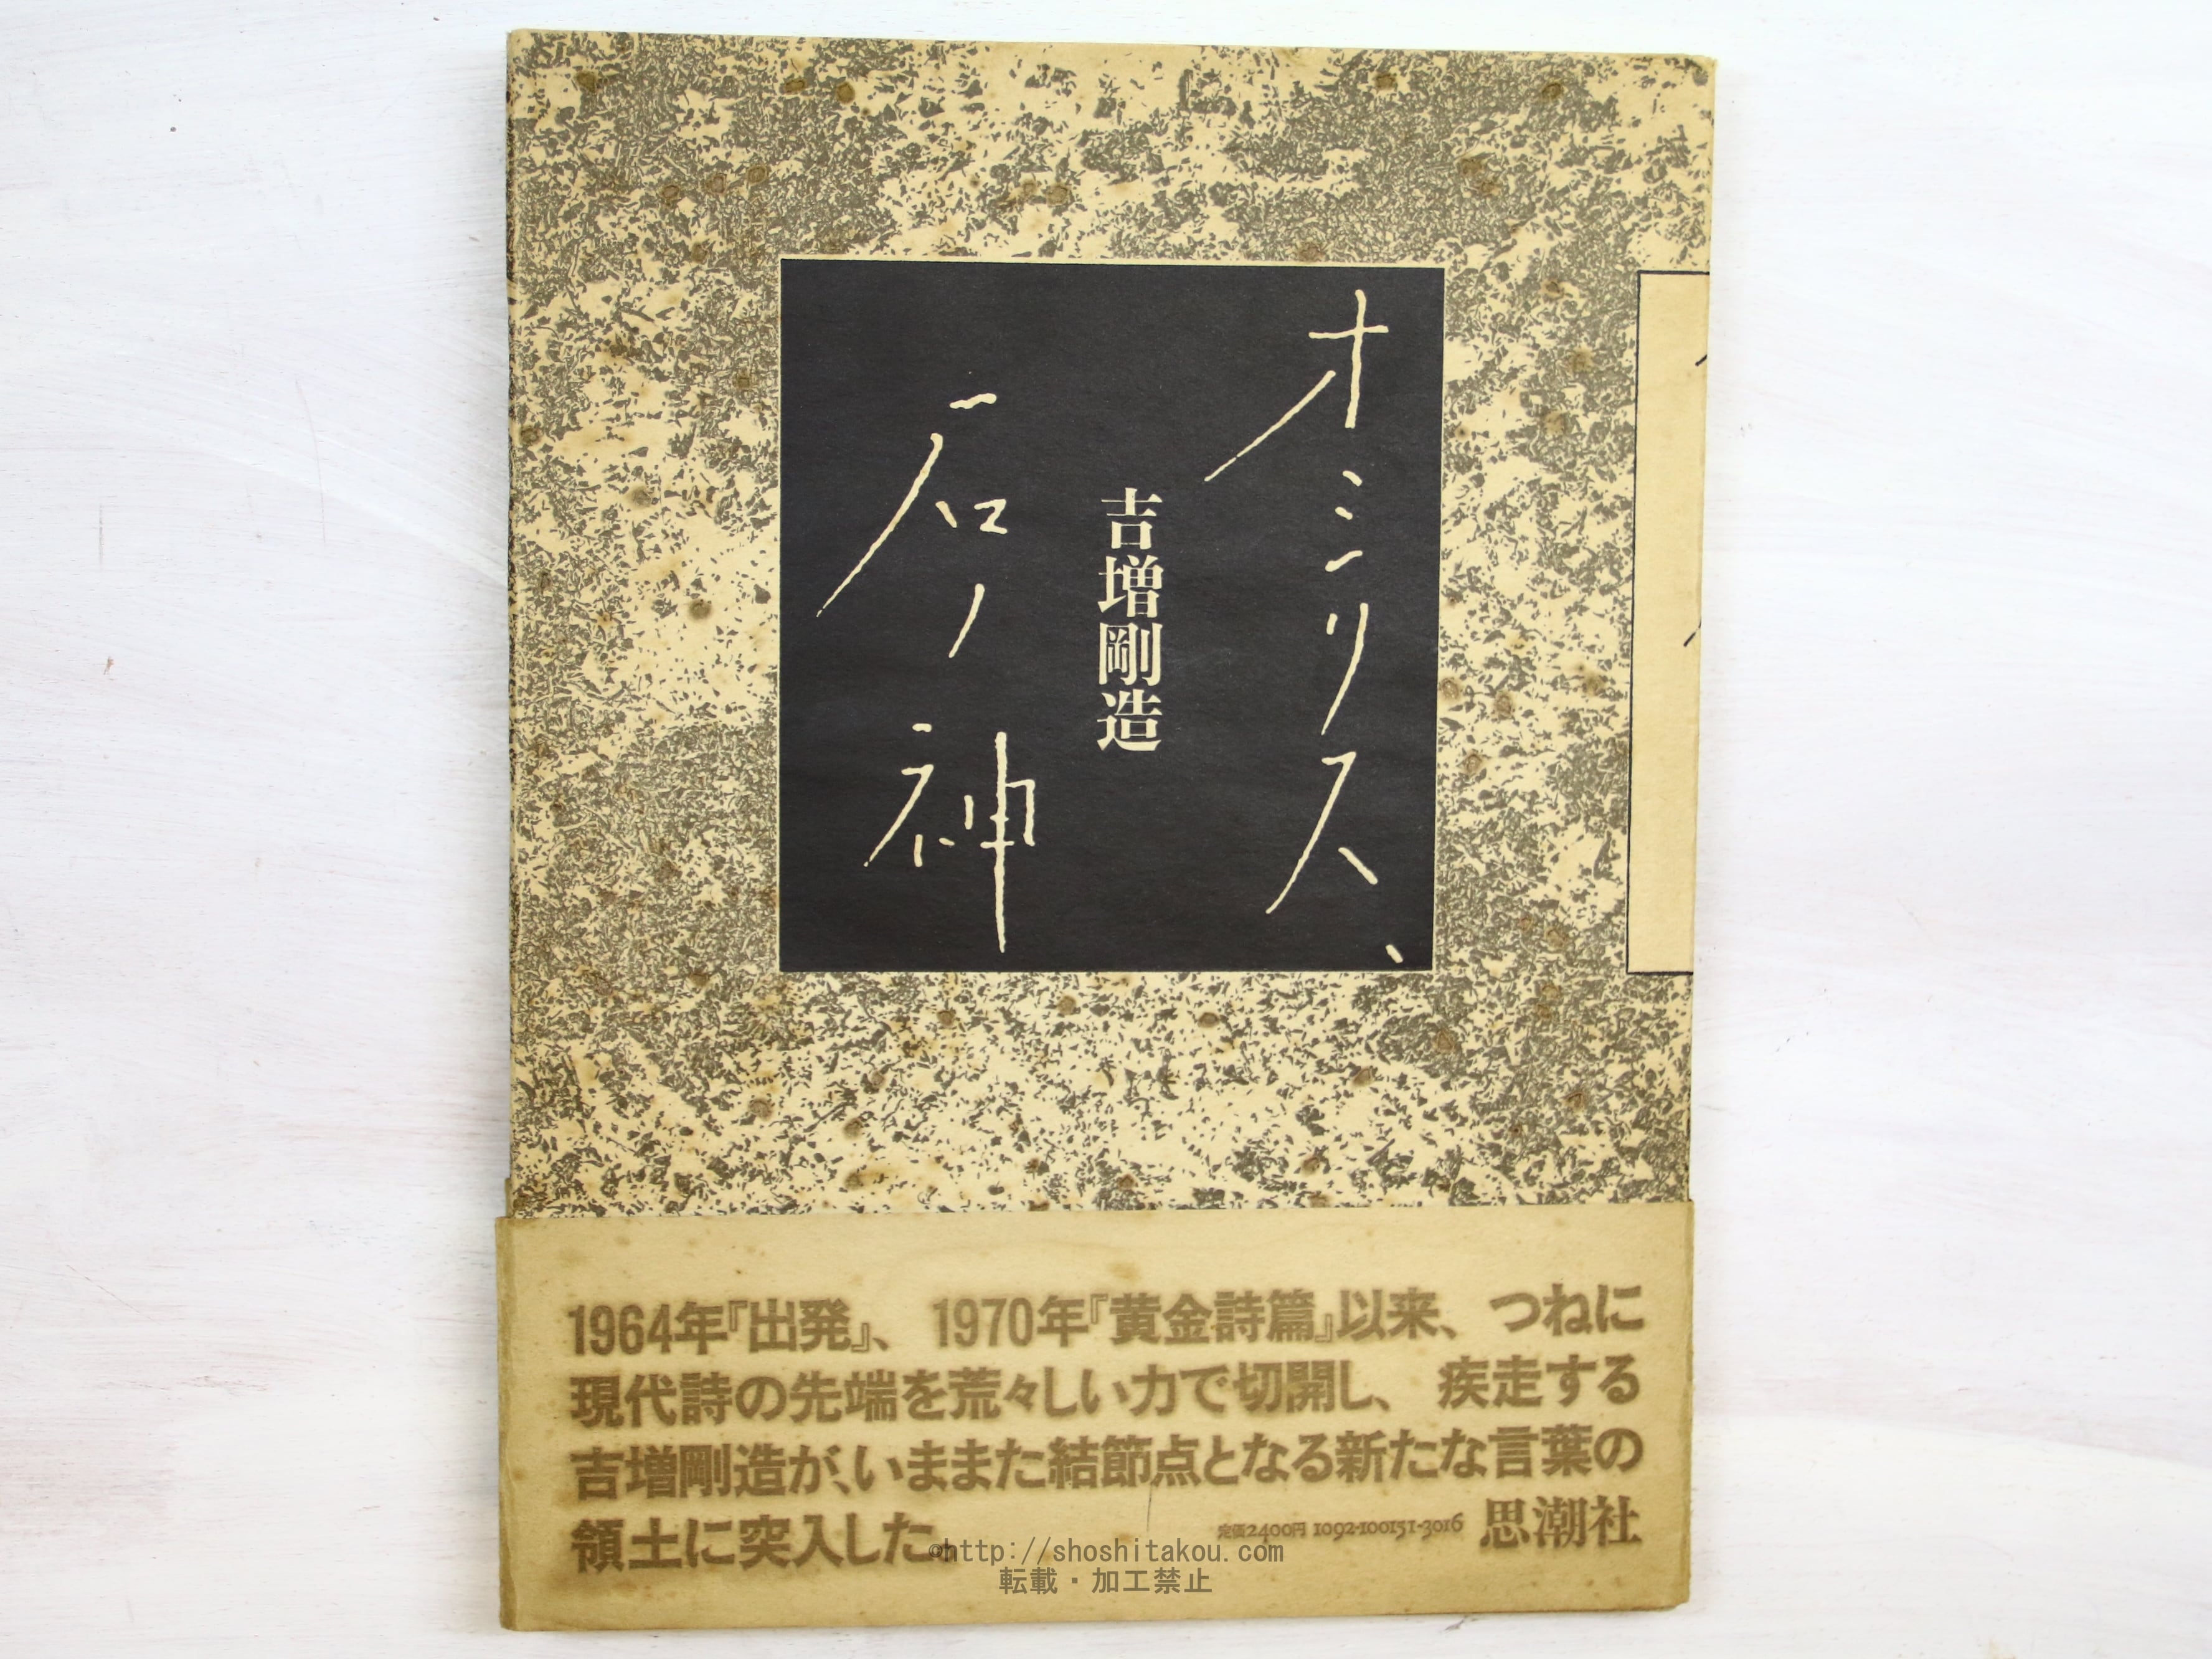 オシリス、
吉増剛造
石ノ神
1964年『出発』、1970年『黄金詩篇』以来、つねに
現代詩の先端を荒々しい力で切開し、疾走する
吉増剛造が、いままた結節点となる新たな言葉の
領土に突入した。
定価2400円 1092-100151-3016 思潮社
©http://shoshitakou.com
転載・加工禁止